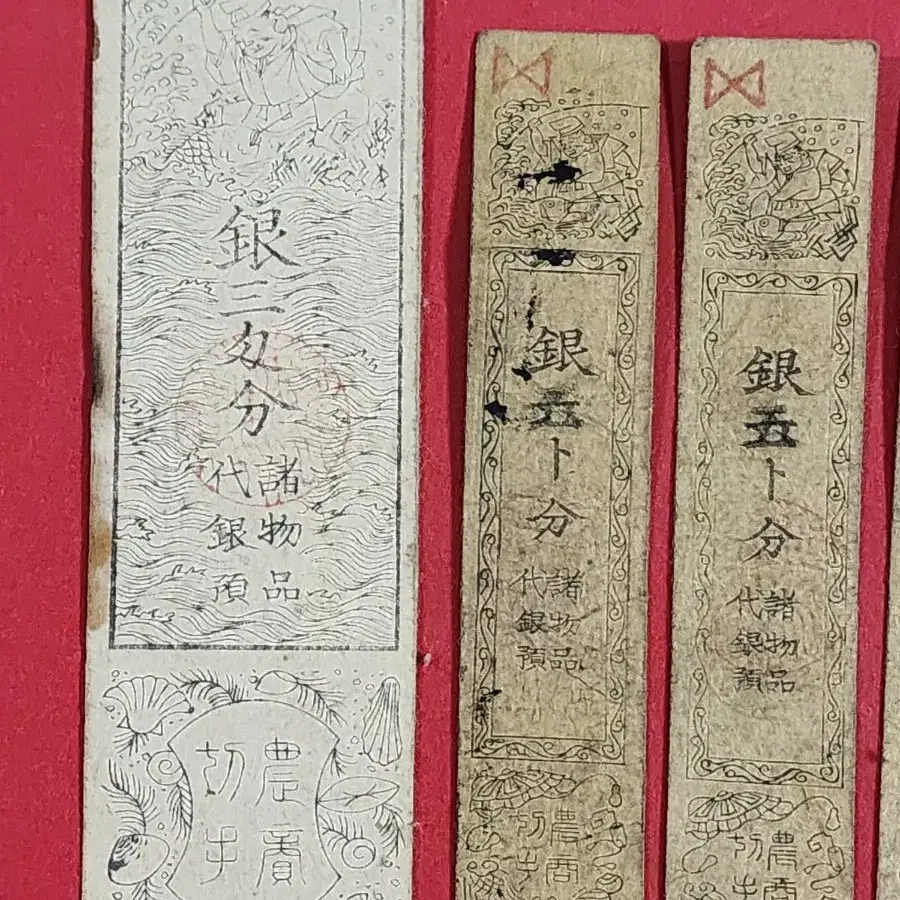 銀三匁分
諸物品
代銀預
農
切手
銀五卜分
諸物品
代銀預
農商
切手
銀五卜分
諸物品
代銀預
農商
切手